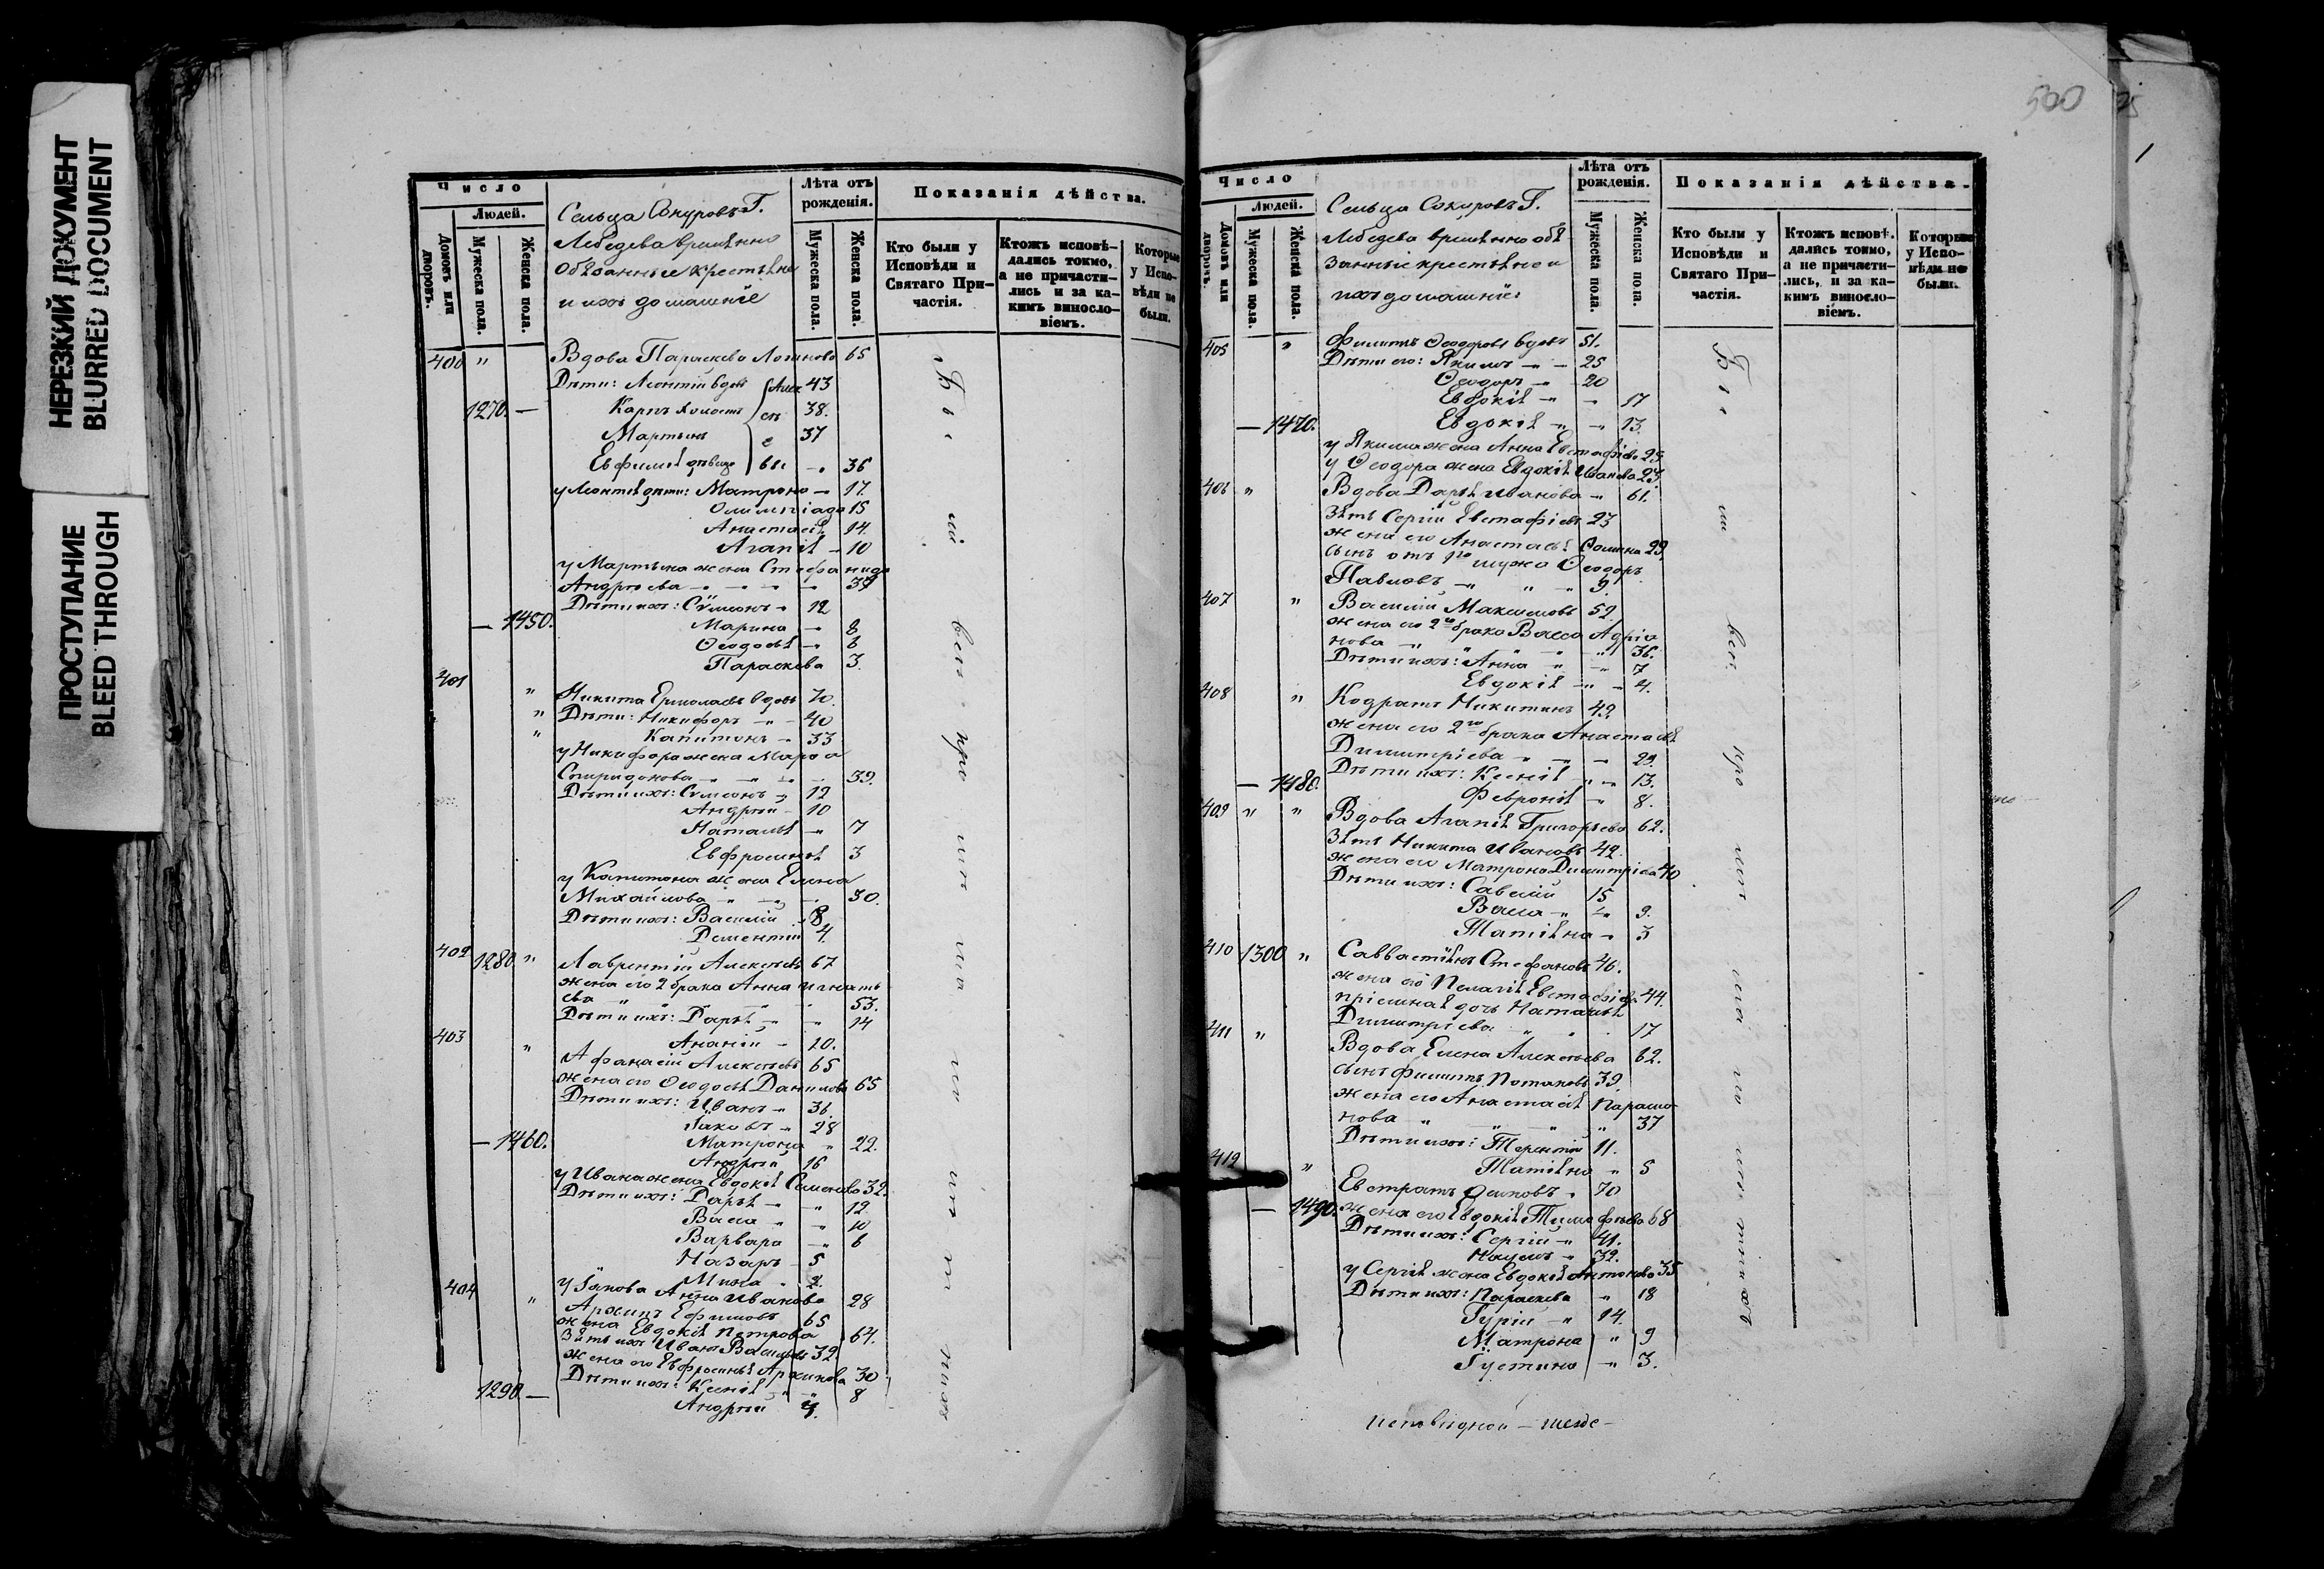 НЕРЕЗКИЙ ДОКУМЕНТ
BLURRED DOCUMENT
ПРОСТУПАНИЕ
BLEED THROUGH
Число
Людей.
Домовъ или дворовъ.
Мужеска пола.
Женска пола.
Сельца Сокуровъ Г.
Лебедева временно
обязанные крестьяне
и ихъ домашніе
Лѣта отъ рожденія.
Мужеска пола.
Женска пола.
Показанія дѣйства.
Кто были у Исповѣди и Святаго Причастія.
Ктожъ исповѣдались токмо, а не причастились и за какимъ винословіемъ.
Которые у Исповѣди не были.
400 " Вдова Параскева Логинова 65
Дѣти: Леонтій вдовъ 43
1270. — Карпъ холостъ 38.
Мартынъ 37
Евфимія дѣвица 36
у Леонтія дѣти: Матрона 17.
Олимпіада 15
Анастасія 14.
Агапія 10
у Мартына жена Стефанида
Андреева 37
Дѣти ихъ: Сѵмеонъ 12
— 1450. Марина 8
Ѳеодосія 6
Параскева 3.
401 " Никита Ермолаевъ вдовъ 70.
" Дѣти: Никифоръ 40
" Капитонъ 33
у Никифора жена Марѳа
Спиридонова 39.
Дѣти ихъ: Сѵмеонъ 12
Андрей 10
Наталія 7
Евфросинія 3
у Капитона жена Елена
Михайлова 30.
Дѣти ихъ: Василій 8
Дементій 4.
402 1280. " Лаврентій Алексѣевъ 67
жена его 2 брака Анна Игнатьева 53.
Дѣти ихъ: Дарья 14
Ананій 10.
403 " Афанасій Алексѣевъ 65
жена его Ѳеодосія Данилова 65
Дѣти ихъ: Иванъ 36.
Іаковъ 28
— 1460. Матрона 22.
Андрей 16
у Ивана жена Евдокія Семенова 32.
Дѣти ихъ: Дарья 12
Васса 10
Варвара 6
Назаръ 5
Мина 2.
у Іакова Анна Иванова 28
404 " Архипъ Ефимовъ 65
жена Евдокія Петрова 64.
Зять ихъ Иванъ Васильевъ 32.
жена его Евфросинія Архипова 30
Дѣти ихъ: Ксенія 8
1290. — Андрей 4.
500
Число
Людей.
Домовъ или дворовъ.
Мужеска пола.
Женска пола.
Сельца Сокуровъ Г.
Лебедева временно обя
занные крестьяне и
ихъ домашніе
Лѣта отъ рожденія.
Мужеска пола.
Женска пола.
Показанія дѣйства.
Кто были у Исповѣди и Святаго Причастія.
Ктожъ исповѣдались токмо, а не причастились, и за какимъ винословіемъ.
Которые у Исповѣди не были.
405 " Филиппъ Ѳеодоровъ вдовъ 51.
Дѣти его: Якимъ 25
Ѳеодоръ 20
Евдокія 17
— 1470. Евдокія 13.
у Якима жена Анна Евстафіева 25
у Ѳеодора жена Евдокія Иванова 23.
406 " Вдова Дарья Иванова 61.
Зять Сергій Евстафіевъ 23
жена его Анастасія Ѳомина 29.
сынъ отъ 1го мужа Ѳеодоръ
Павловъ 9.
407 " Василій Максимовъ 52.
жена его 2го брака Васса Адріа
нова 36.
Дѣти ихъ: Анна 7
Евдокія 4.
408 " Кодратъ Никитинъ 42.
жена его 2го брака Анастасія
Димитріева 29.
Дѣти ихъ: Ксенія 13.
— 1480. Февронія 8.
409 " " Вдова Агапія Григорьева 62.
Зять Никита Ивановъ 42.
жена его Матрона Димитріева 40
Дѣти ихъ: Савелій 15
Васса 9.
Татіана 3
410 1300 " Савватіянъ Стефановъ 46.
жена его Пелагія Евстафіева 44.
пріемная дочь Наталія
Димитріева 17
411 " Вдова Елена Алексѣева 62.
сынъ Филиппъ Потаповъ 39.
жена его Анастасія Парамо
нова 37
Дѣти ихъ: Терентій 11.
Татіана 5
412 " Евстратъ Осиповъ 70
— 1490. жена его Евдокія Тимофеева 68
Дѣти ихъ: Сергій 41.
Наумъ 32.
у Сергія жена Евдокія Антонова 35
Дѣти ихъ: Параскева 18
Гурій 14.
Матрона 9
Іустина 3.